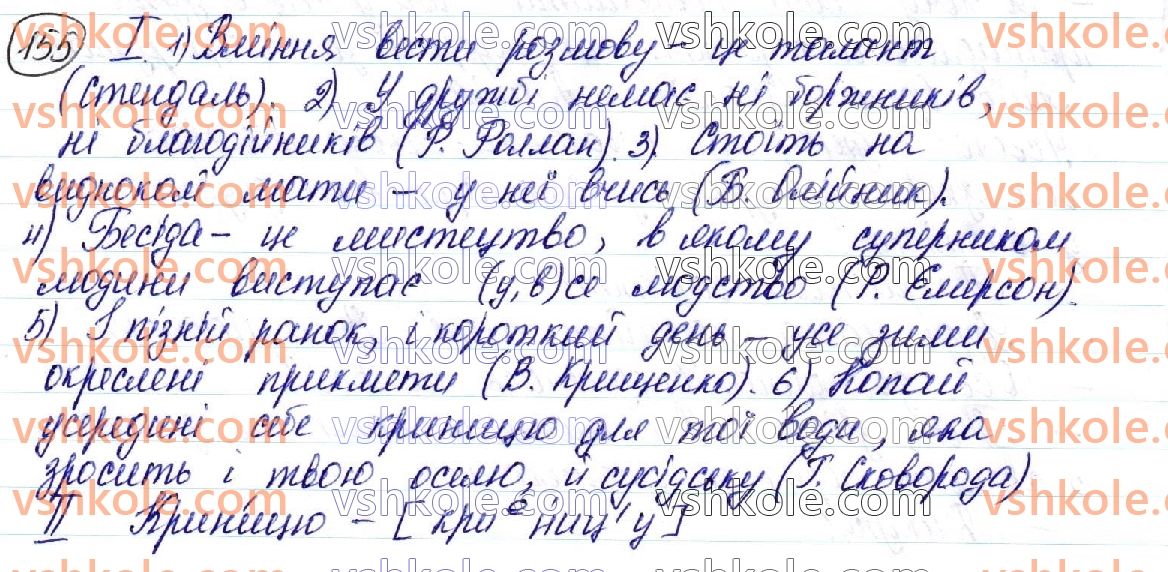 155 I. 1) Вміння вести розмову – це талант
(Стендаль). 2) У дружбі немає ні боржників,
ні благодійників (Р. Роллан). 3) Стоїть на
видноколі мати – у неї вчись (Б. Олійник).
4) Бесіда – це мистецтво, в якому суперником
людини виступає (у, в)се людство (Р. Емерсон).
5) І пізній ранок, і короткий день – усе зими
окреслені прикмети (В. Крищенко). 6) Копай
усередині себе криницю для тої води, яка
зросить і твою оселю, й сусідську (Г. Сковорода)
II Криницю – [криᵉниц'у]